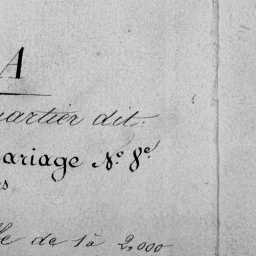 A
uartier dit:
ariage No. 8e.
rs
lle de 1 à 2,000